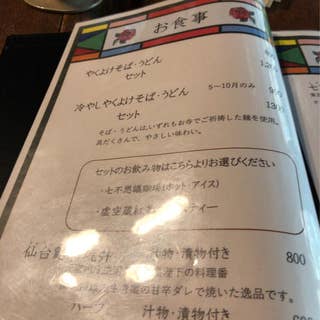 お食事
やくよけそば・うどん
セット
冷やしやくよけそば・うどん 5～10月のみ
セット
そば・うどんは、いずれもお寺でご祈祷した麺を使用。
具だくさんで、やさしい味わい。
セットのお飲み物はこちらよりお選びください
・七不思議珈琲(ホット・アイス)
・虚空蔵紅 ティー
仙台 汁物・漬物付き 800
の料理番
の甘辛ダレで焼いた逸品です。
ハーフ 汁物・漬物付き